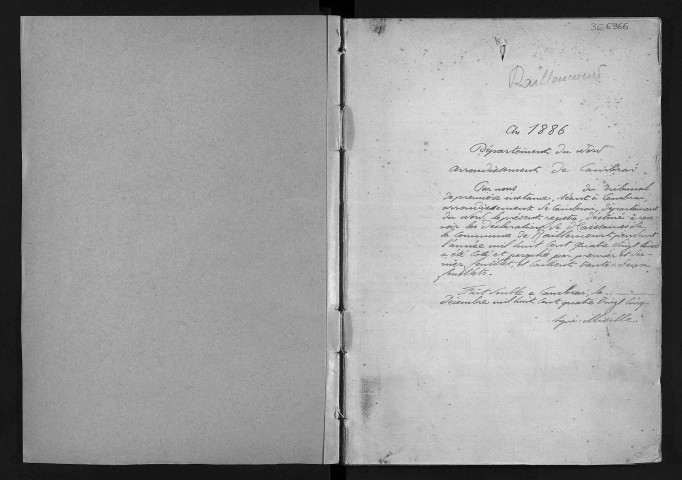 3E 6966
Raillencourt
An 1886
Département du Nord
arrondissement de Cambrai
Par nous du tribunal
de première instance, séant à Cambrai
arrondissement de Cambrai, département
du Nord le présent registre, destiné à rece
voir les déclarations de Naissances de
la commune de Raillencourt pendant
l'année mil huit cent quatre vingt six
a été coté et paraphé par premier et der
nier feuillet, et contient trente deux
feuillets.
Fait double à Cambrai, le
décembre mil huit cent quatre vingt cinq
signé: